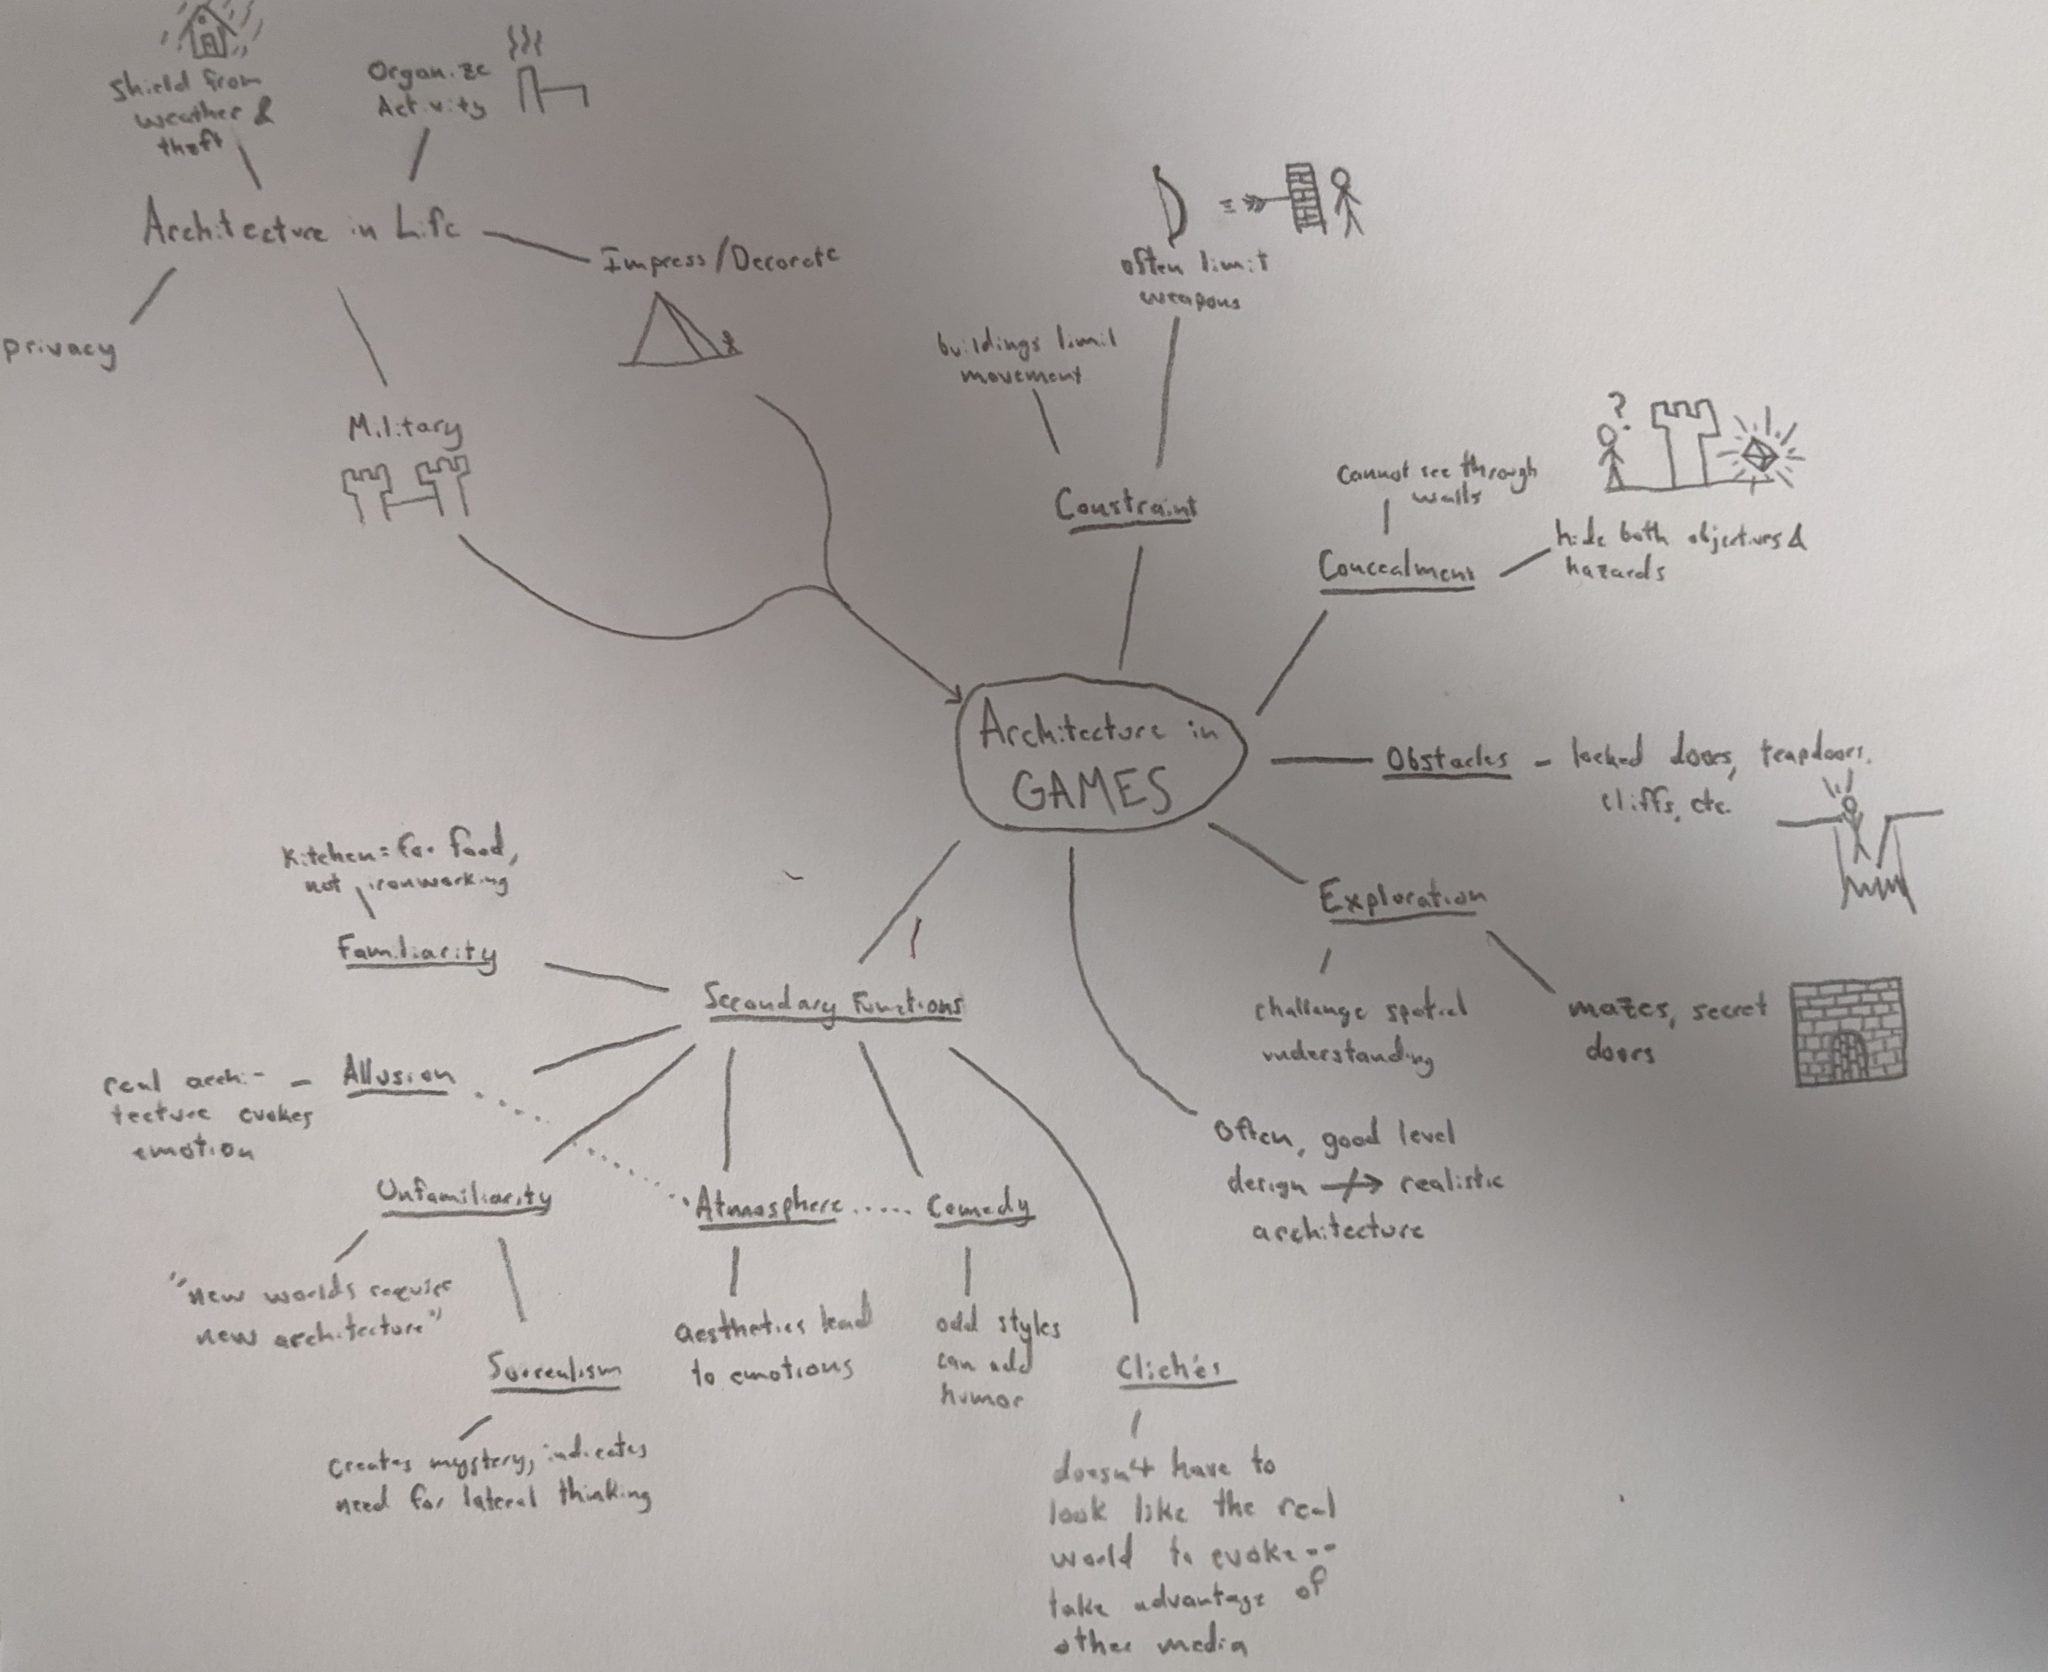 Shield from
weather &
theft
Organize
Activity
Architecture in Life
Impress/Decorate
privacy
Military
often limit
weapons
buildings limit
movement
Constraint
Cannot see through
walls
Concealment
hide both objectives &
hazards
?
Architecture in
GAMES
Obstacles - locked doors, trapdoors,
cliffs, etc.
Exploration
challenge spatial
understanding
mazes, secret
doors
Often, good level
design ↛ realistic
architecture
Secondary Functions
Kitchen = for food,
not ironworking
Familiarity
Allusion
real archi-
tecture evokes
emotion
Unfamiliarity
"new worlds require
new architecture"
Surrealism
creates mystery, indicates
need for lateral thinking
Atmosphere
aesthetics lead
to emotions
Comedy
odd styles
can add
humor
Clichés
doesn't have to
look like the real
world to evoke --
take advantage of
other media